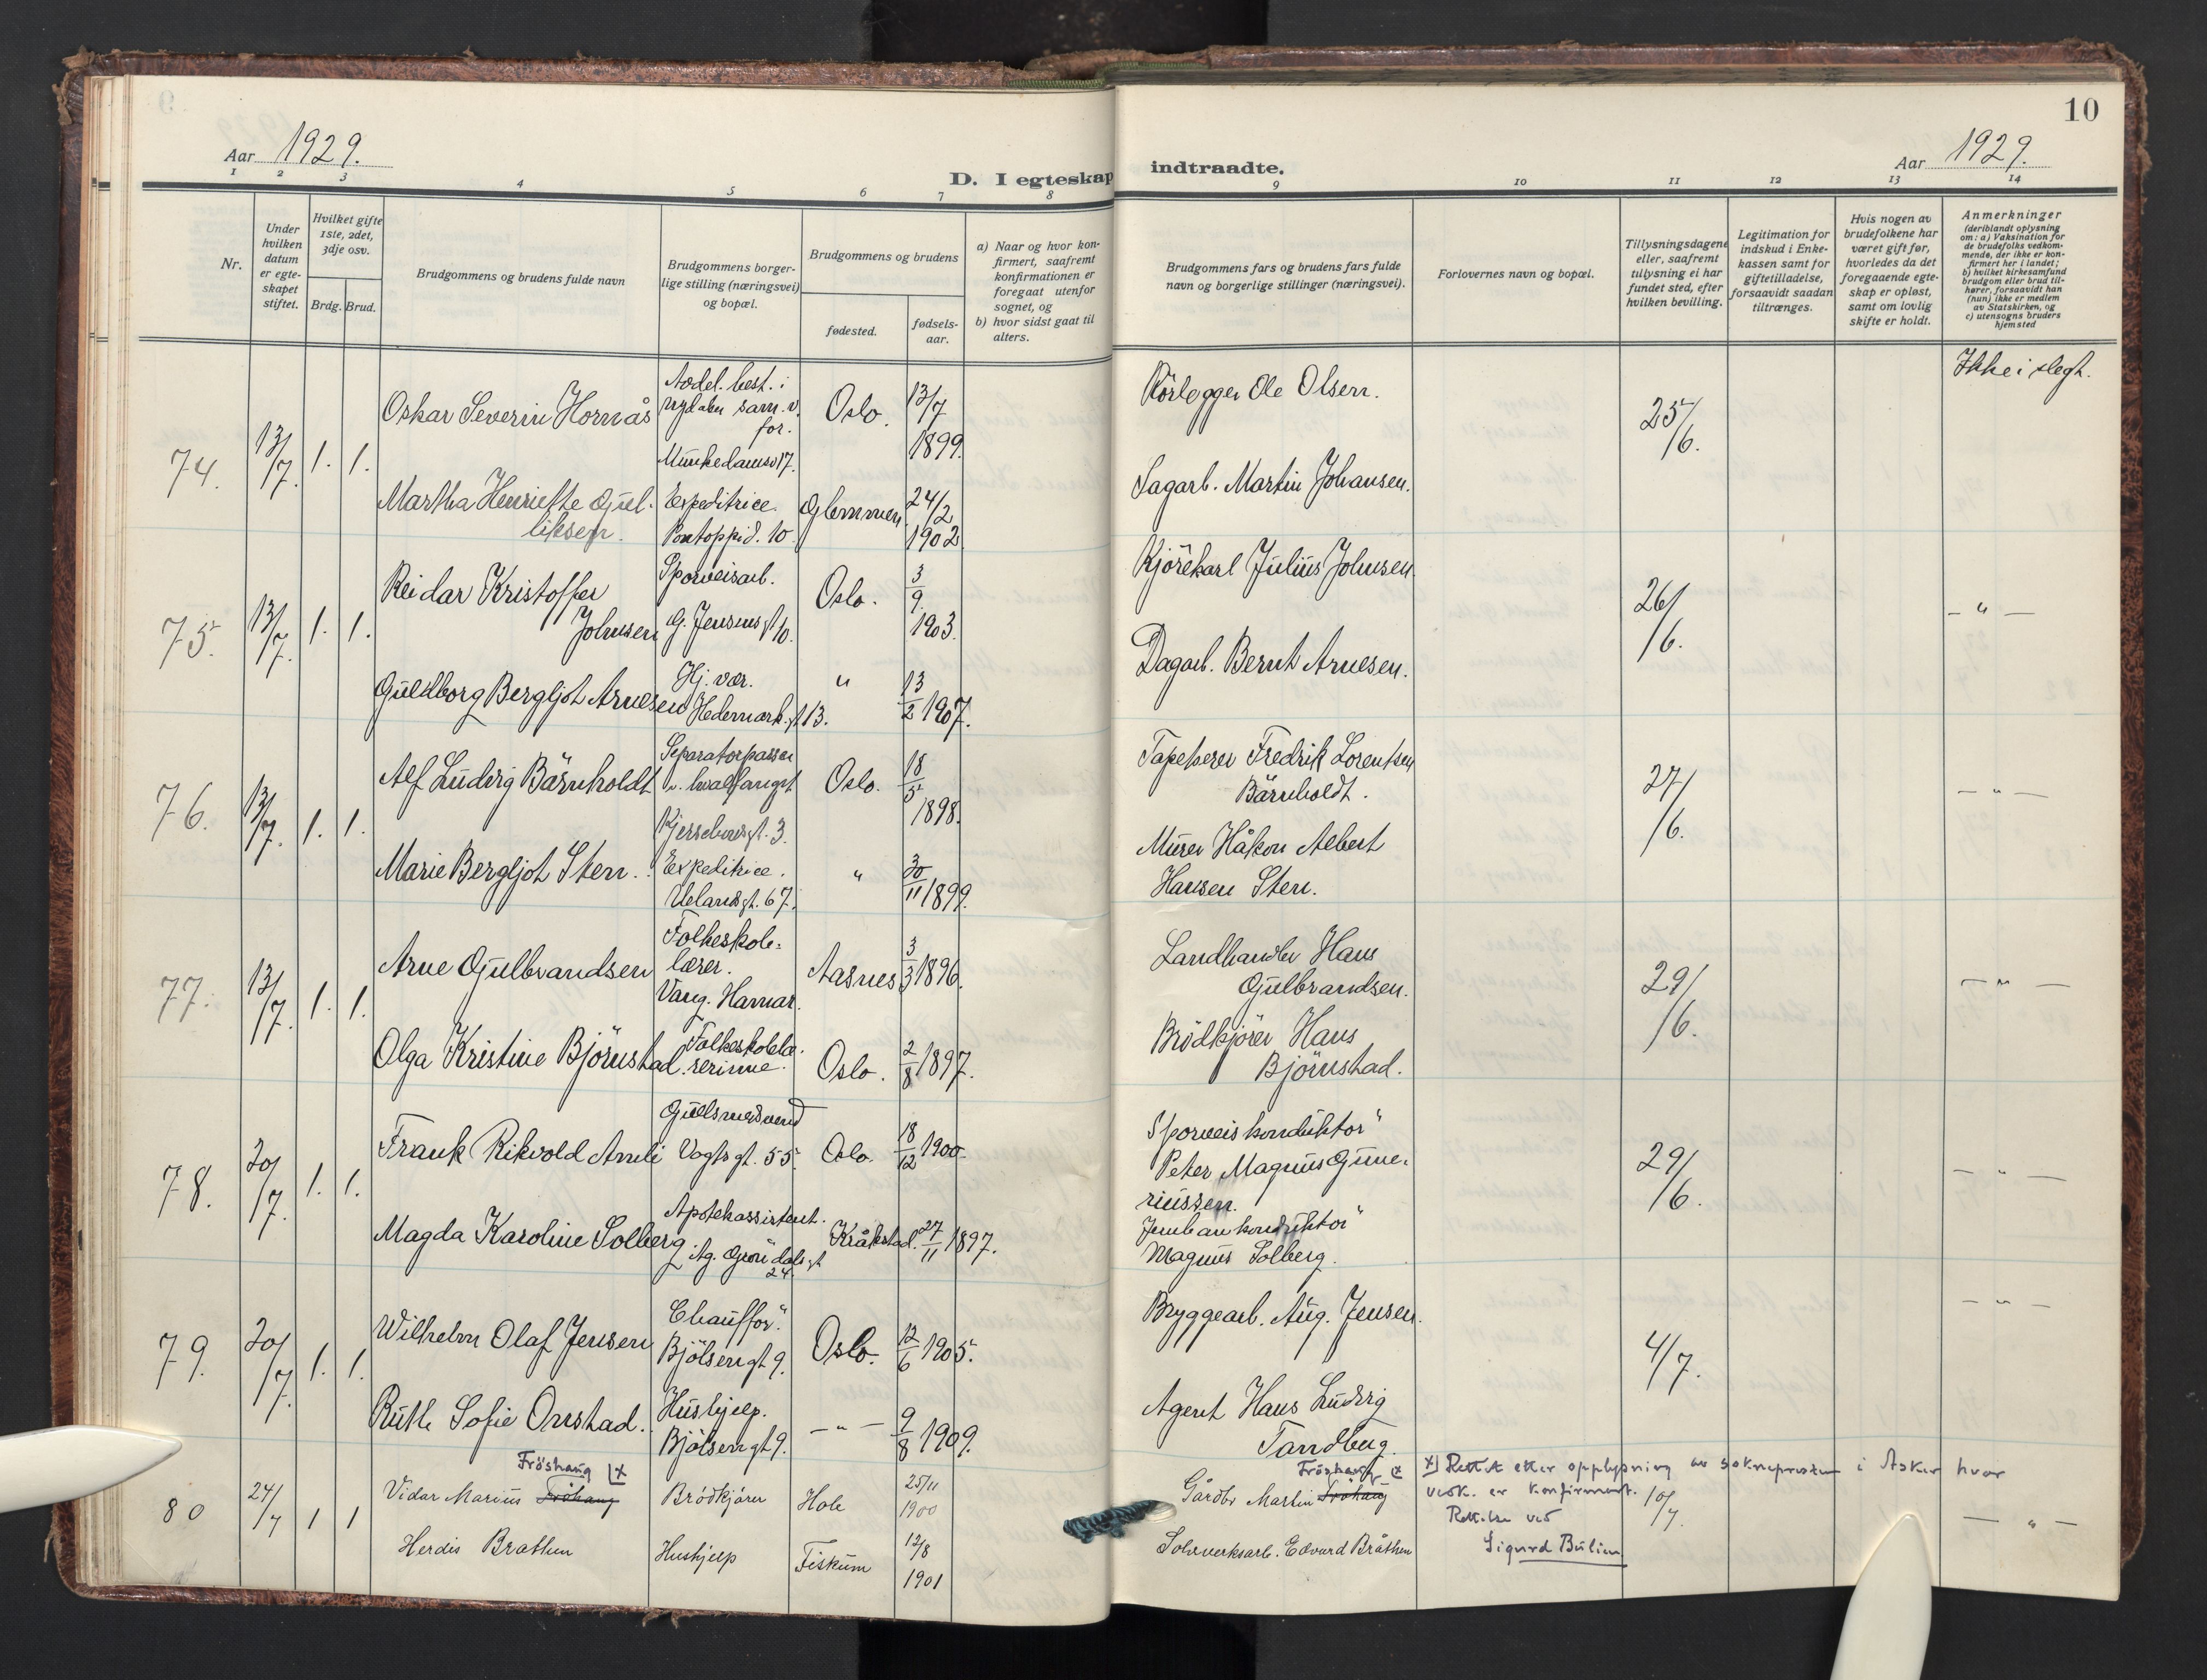 Aar 1929.
D. I egteskap
1 2 3 4 5 6 7 8
Nr.
Under hvilken datum er egteskapet stiftet.
Hvilket gifte 1ste, 2det, 3dje osv.
Brdg. Brud.
Brudgommens og brudens fulde navn
Brudgommens borgerlige stilling (næringsvei) og bopæl.
Brudgommens og brudens
fødested.
fødselsaar.
a) Naar og hvor konfirmert, saafremt konfirmationen er foregaat utenfor sognet, og
b) hvor sidst gaat til alters.
74. 13/7. 1. 1.
Oskar Severin Hornås
Munkedamsv 17.
Oslo. 13/7 1899.
Martha Henriette Gulliksen.
Expeditrice.
Pontoppid. 10.
Glemmen. 24/2 1902
75. 13/7. 1. 1.
Reidar Kristoffer Johnsen
Sporveisarb.
G. Jensensgt 10.
Oslo. 3/9 1903.
Guldborg Bergljot Arnesen
Hj. vær.
Hedemark.gt 13.
" 13/2 1907.
76. 13/7. 1. 1.
Alf Ludvig Bärnholdt
Separatorpasser
v. hvalfangst
Oslo. 18/5 1898.
Marie Bergljot Sten.
Expeditrice.
Uelandsgt. 67.
" 30/11 1899.
77. 13/7. 1. 1.
Arne Gulbrandsen
Folkeskolelærer.
Vang. Hamar.
Aasnes 3/3 1896.
Olga Kristine Björnstad.
Folkeskolelærerinne.
Oslo. 2/8 1897.
78. 20/7. 1. 1.
Frank Rikvold Amli
Gullsmedsvend
Vogtsgt. 55.
Oslo. 18/12 1900.
Magda Karoline Solberg
Apotekassistent.
24.
Kråkstad. 27/11 1897.
79. 20/7. 1. 1.
Wilhelm Olaf Jensen
Chauffør.
Bjölsengt 9.
Oslo. 12/6 1905.
Ruth Sofie Onstad.
Hushjelp.
Bjölsengt 9.
— " — 9/8 1909.
80 24/7 1 1
Fröshaug x
Vidar Marius Fröhaug
Brödkjörer Hole 25/11 1900
Herdis Bråthen
Hushjelp Fiskum 12/8 1901
10
indtraadte.
Aar 1929.
9 10 11 12 13 14
Brudgommens fars og brudens fars fulde navn og borgerlige stillinger (næringsvei).
Forlovernes navn og bopæl.
Tillysningsdagene eller, saafremt tillysning ei har fundet sted, efter hvilken bevilling.
Legitimation for indskud i Enkekassen samt for giftetilladelse, forsaavidt saadan tiltrænges.
Hvis nogen av brudefolkene har været gift før, hvorledes da det foregaaende egteskap er opløst, samt om lovlig skifte er holdt.
Anmerkninger
(deriblandt oplysning om: a) Vaksination for de brudefolks vedkommende, der ikke er konfirmert her i landet;
b) hvilket kirkesamfund brudgom eller brud tilhører, forsaavidt han (hun) ikke er medlem av Statskirken, og
c) utensogns bruders hjemsted
Rörlegger Ole Olsen. 25/6. Ikke i slegt.
Sagarb. Martin Johansen.
Kjörekarl Julius Johnsen. 26/6. — " —
Dagarb. Bernt Arnesen.
Tapetserer Fredrik Lorentsen
Bärnholdt. 27/6. — " —
Murer Håkon Albert
Hansen Sten.
Landhandler Hans
Gulbrandsen. 29/6. — " —
Brödkjörer Hans
Björnstad.
Sporveiskonduktør
Peter Magnus Guneriussen. 29/6. — " —
Jernbanekonduktør
Magnus Solberg.
Bryggearb. Aug. Jensen. 4/7. — " —
Agent Hans Ludvig
Tandberg.
Fröshaug x
Gårdbr Martin Fröhaug
x) Rettet etter opplysning av soknepresten i Asker hvor
vedk. er konfirmert. 10/7.
Rettelse ved — " —
Sigurd Bulien
Solvverksarb. Edvard Bråthen